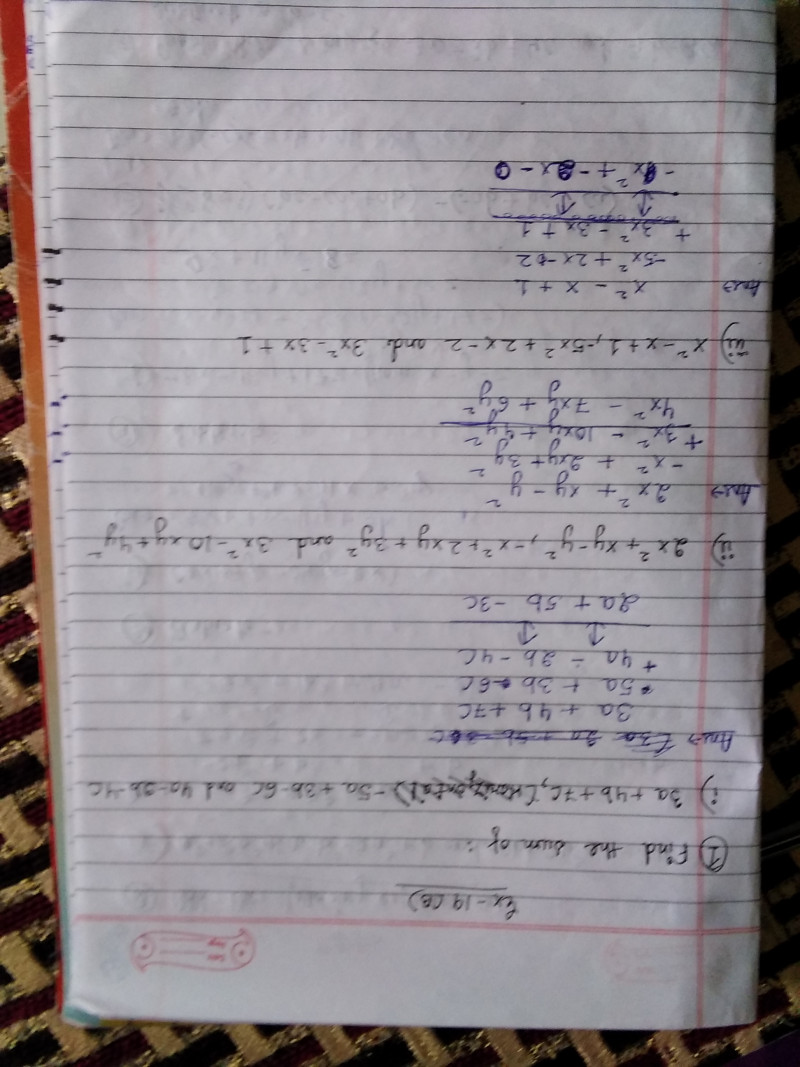 Ex-19(B)
① Find the sum of :
i) 3a + 4b + 7c, (Horizontal) - 5a + 3b - 6c and 4a - 2b - 4c
Ans→
3a + 4b + 7c
-5a + 3b - 6c
+ 4a - 2b - 4c
2a + 5b - 3c
ii) 2x² + xy - y², -x² + 2xy + 3y² and 3x² - 10xy + 4y²
Ans→ 2x² + xy - y²
- x² + 2xy + 3y²
+ 3x² - 10xy + 4y²
4x² - 7xy + 6y²
iii) x² - x + 1, -5x² + 2x - 2 and 3x² - 3x + 1
Ans→ x² - x + 1
-5x² + 2x - 2
+ 3x² - 3x + 1